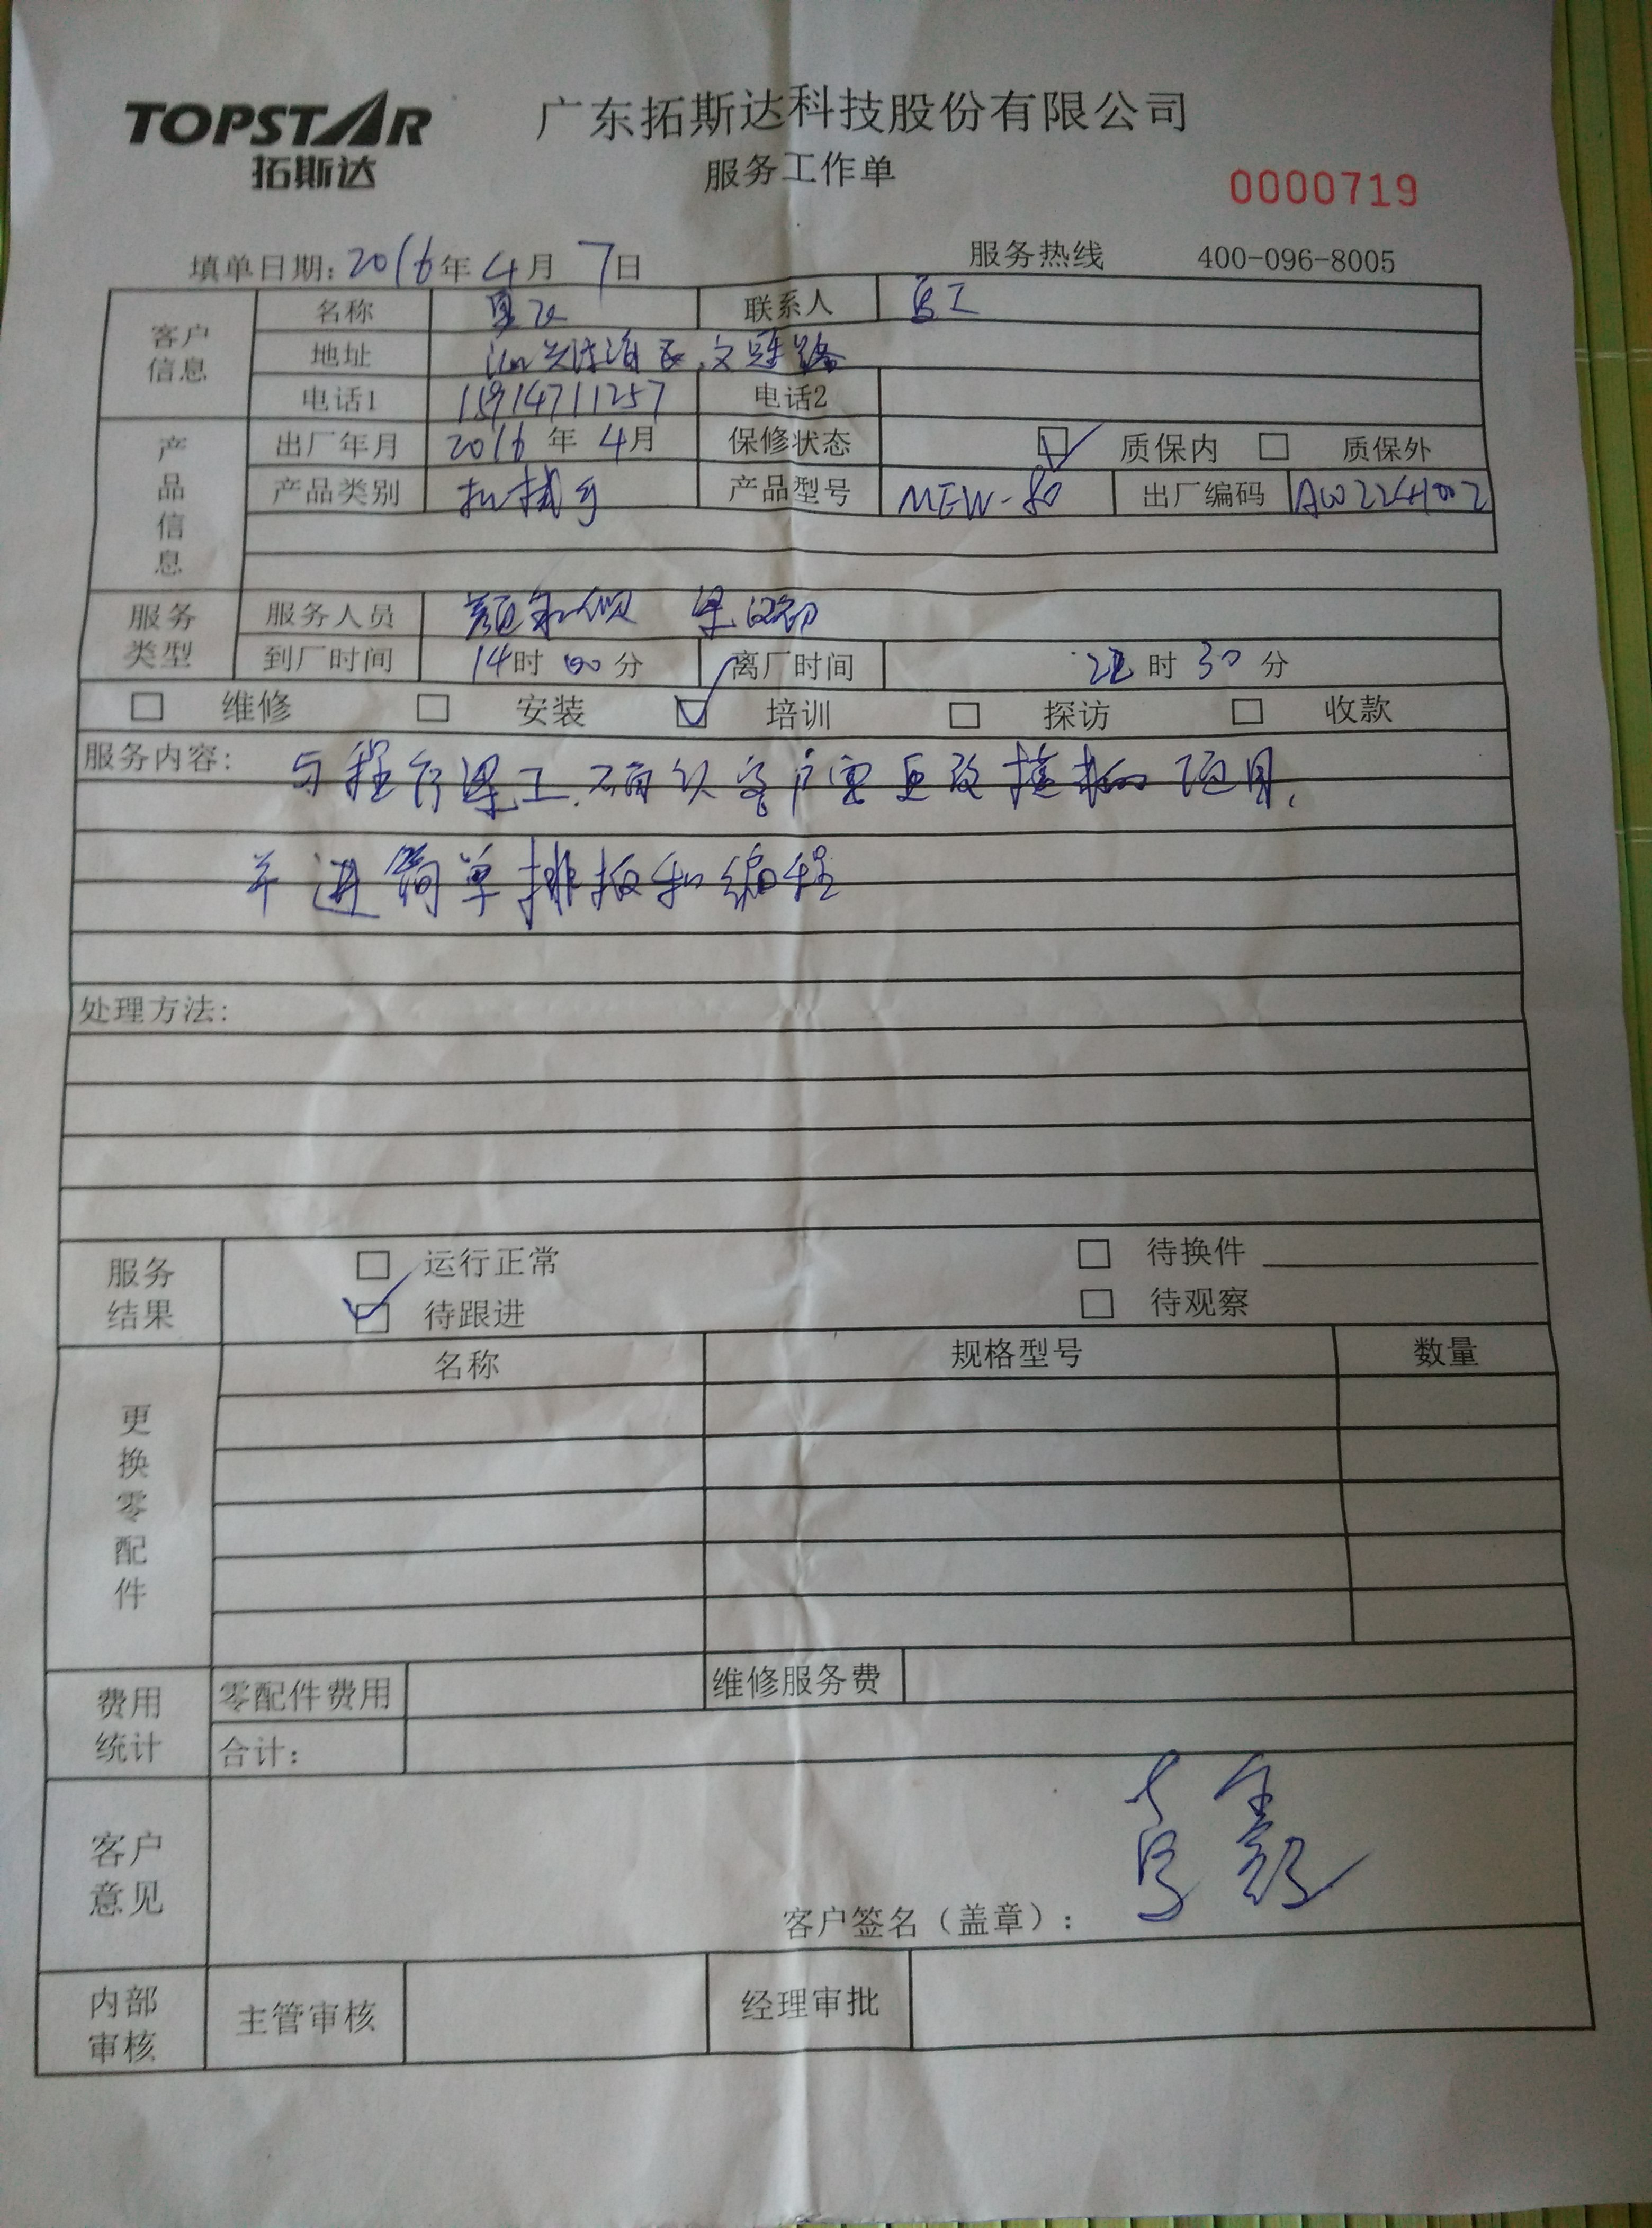 TOPSTAR
拓斯达
广东拓斯达科技股份有限公司
服务工作单
0000719
填单日期: 2016年 4月 7日
服务热线 400-096-8005
客户信息
名称
联系人
地址
电话1
电话2
产品信息
出厂年月 2016年 4月 保修状态 质保内 质保外
产品类别 机械手 产品型号 MEW-80 出厂编码
服务类型
服务人员
到厂时间 14时 00分 离厂时间 22时 30分
维修 安装 培训 探访 收款
服务内容: 与 梁工 确认客户需更改 项目,
并进简单排板和编程
处理方法:
服务结果
运行正常 待换件
待跟进 待观察
更换零配件
名称 规格型号 数量
费用统计
零配件费用 维修服务费
合计:
客户意见
客户签名（盖章）:
内部审核
主管审核 经理审批